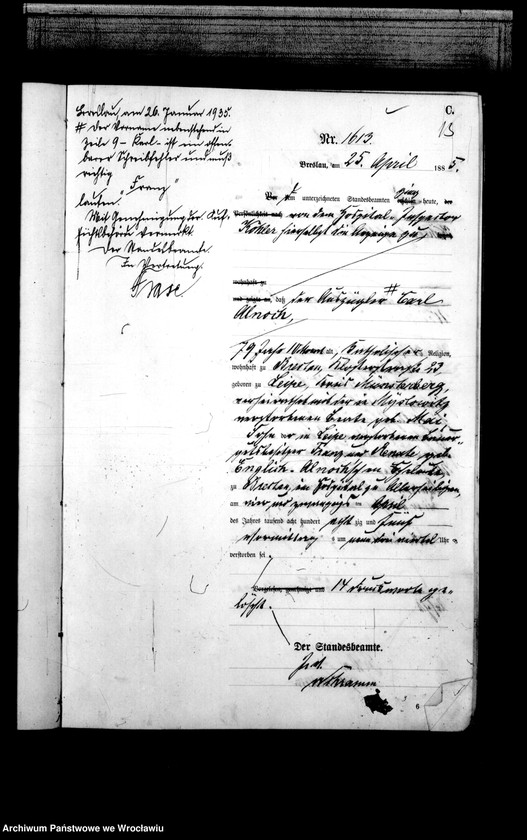 Breslau, am 26. Januar 1935.
# Der Vorname nebenstehend in
Zeile 9 - Karl - ist ein offen-
barer Schreibfehler und muß
richtig
"Franz"
lauten.
Mit Genehmigung der Auf-
sichtsbehörde vermerkt
Der Standesbeamte
In Vertretung.
C.
13
Nr. 1613.
Breslau, am 25. April 1885.
Vor dem unterzeichneten Standesbeamten ging heute, der
Persönlichkeit nach von dem Hospital-Inspector
Köhler hierselbst die Anzeige zu,
wohnhaft zu
und zeigte an, daß der Auszügler # Carl
Alnoch,
79 Jahr alt, katholischer Religion,
wohnhaft zu Breslau, Klosterstraße 23
geboren zu Leipe, Kreis Münsterberg,
verheirathet mit der in Myslowitz
verstorbenen Beate geb. Mai
Sohn der in Leipe verstorbenen Bauer-
gutsbesitzer Franz und Renate geb.
Englisch-Alnochschen Eheleute,
zu Breslau, im Hospital zu Allerheiligen,
am vier und zwanzigsten April
des Jahres tausend acht hundert achtzig und fünf
Vormittags um neun drei viertel Uhr
verstorben sei.
14 Druckworte ge-
löscht.
Der Standesbeamte.
6
Archiwum Państwowe we Wrocławiu